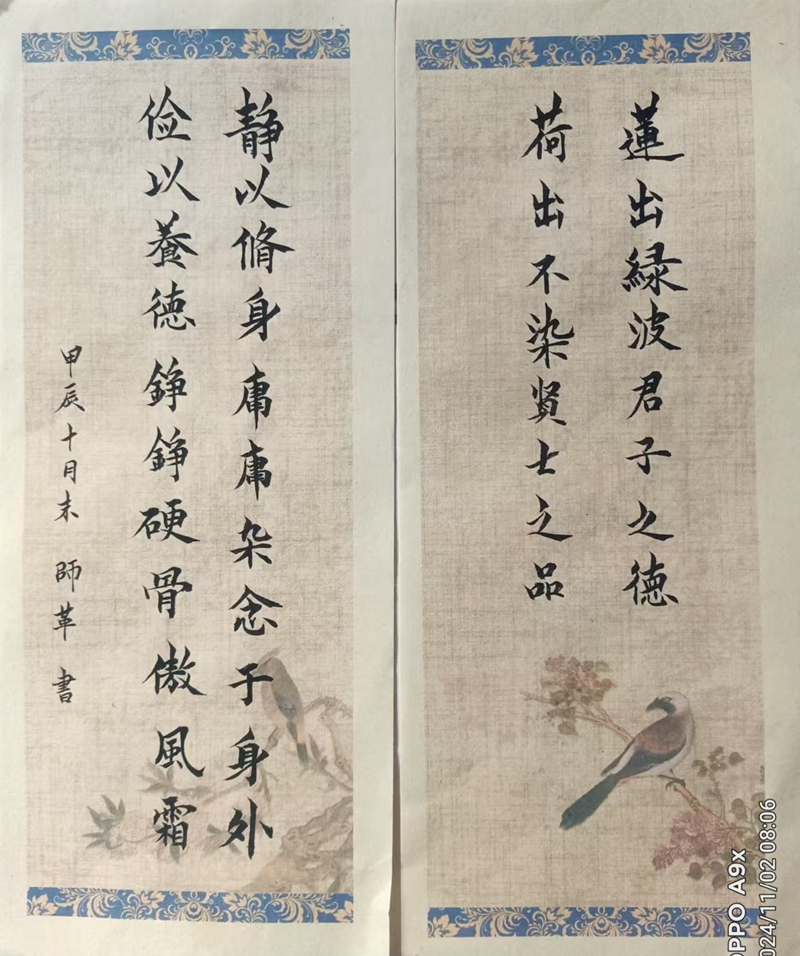 蓮出緑波君子之德
荷出不染贤士之品
靜以脩身庸庸杂念于身外
俭以養德錚錚硬骨傲風霜
甲辰十月末 師革書
OPPO A9x
2024/11/02 08:06